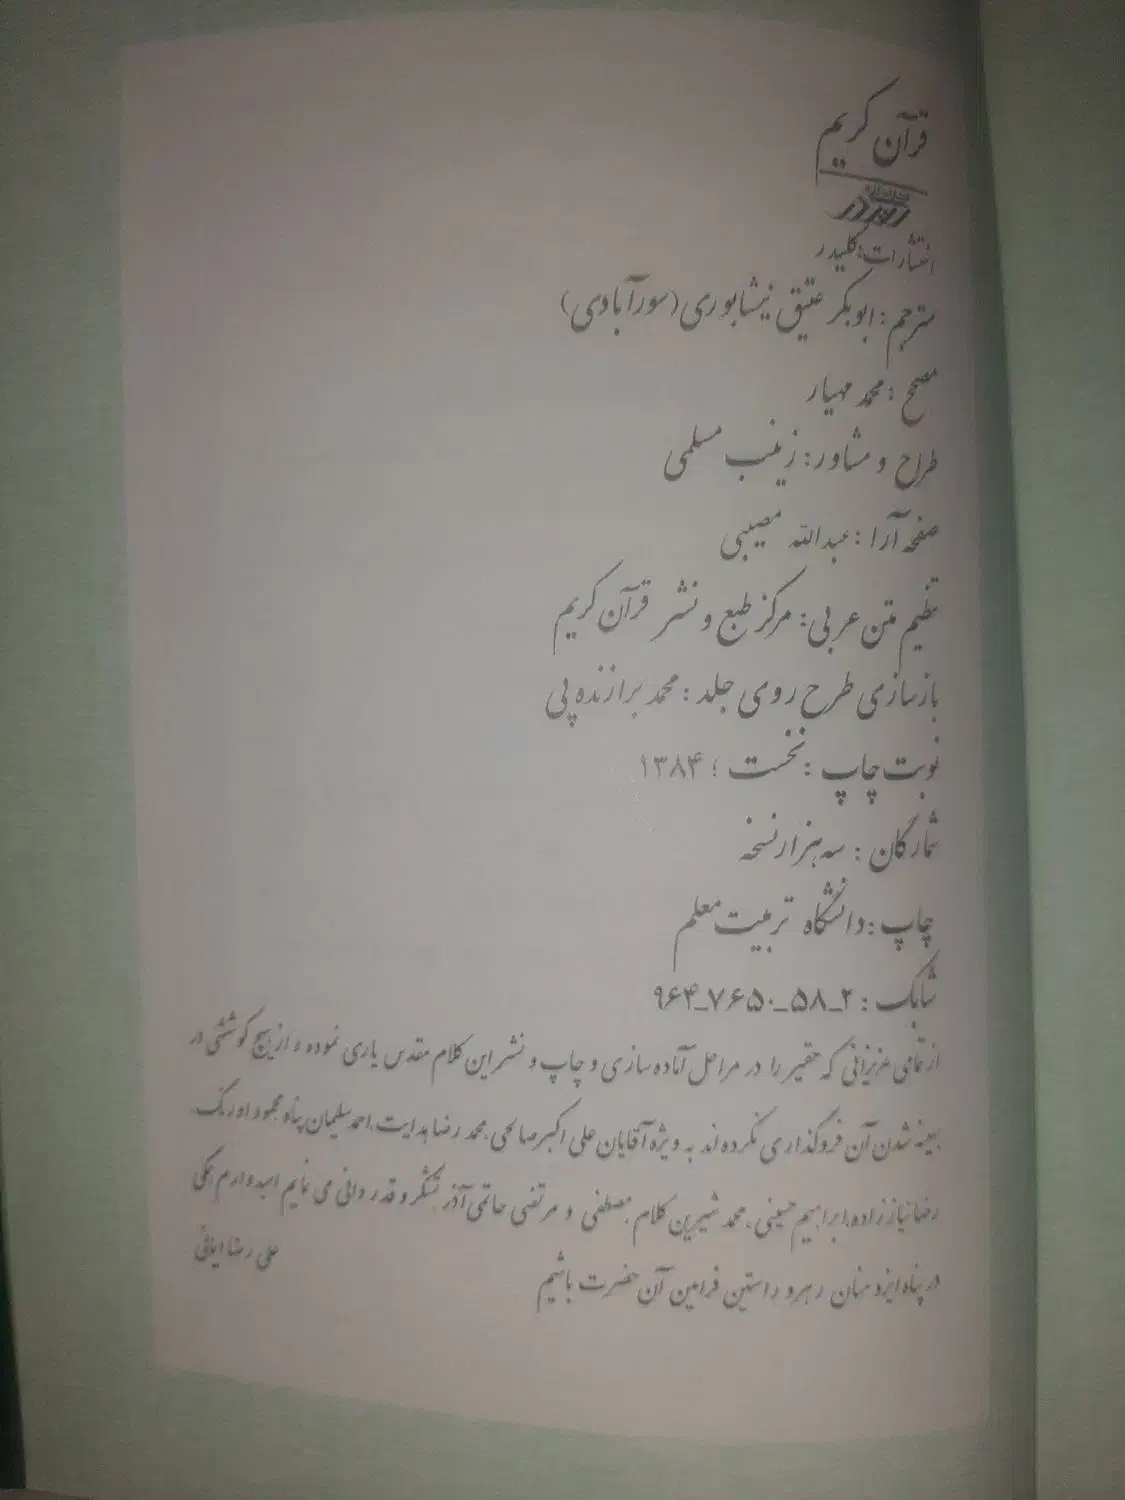 قرآن کریم
انتشارات: کلیدر
مترجم: ابوبکر عتیق نیشابوری (سورآبادی)
مصحح: محمد مهیار
طراح و مشاور: زینب مسلمی
صفحه آرا: عبدالله مصیبی
تنظیم متن عربی: مرکز طبع و نشر قرآن کریم
بازسازی طرح روی جلد: محمد برازنده پی
نوبت چاپ: نخست؛ ۱۳۸۴
شمارگان: سه هزار نسخه
چاپ: دانشگاه تربیت معلم
شابک: ۲_۵۸_۷۶۵۰_۹۶۴
از تمامی عزیزانی که حقیر را در مراحل آماده سازی و چاپ و نشر این کلام مقدس یاری نموده و از هیچ کوششی در
بهینه شدن آن فروگذاری نکرده اند به ویژه آقایان علی اکبر صالحی، محمد رضا هدایت، احمد سلیمان پناه، محمود اورنگ
رضا نیاززاده، ابراهیم حسینی، محمد شیرین کلام، مصطفی و مرتضی حاتمی آذر تشکر و قدردانی می نمایم امیدوارم همگی
در پناه ایزد منان رهرو راستین فرامین آن حضرت باشیم
علی رضا